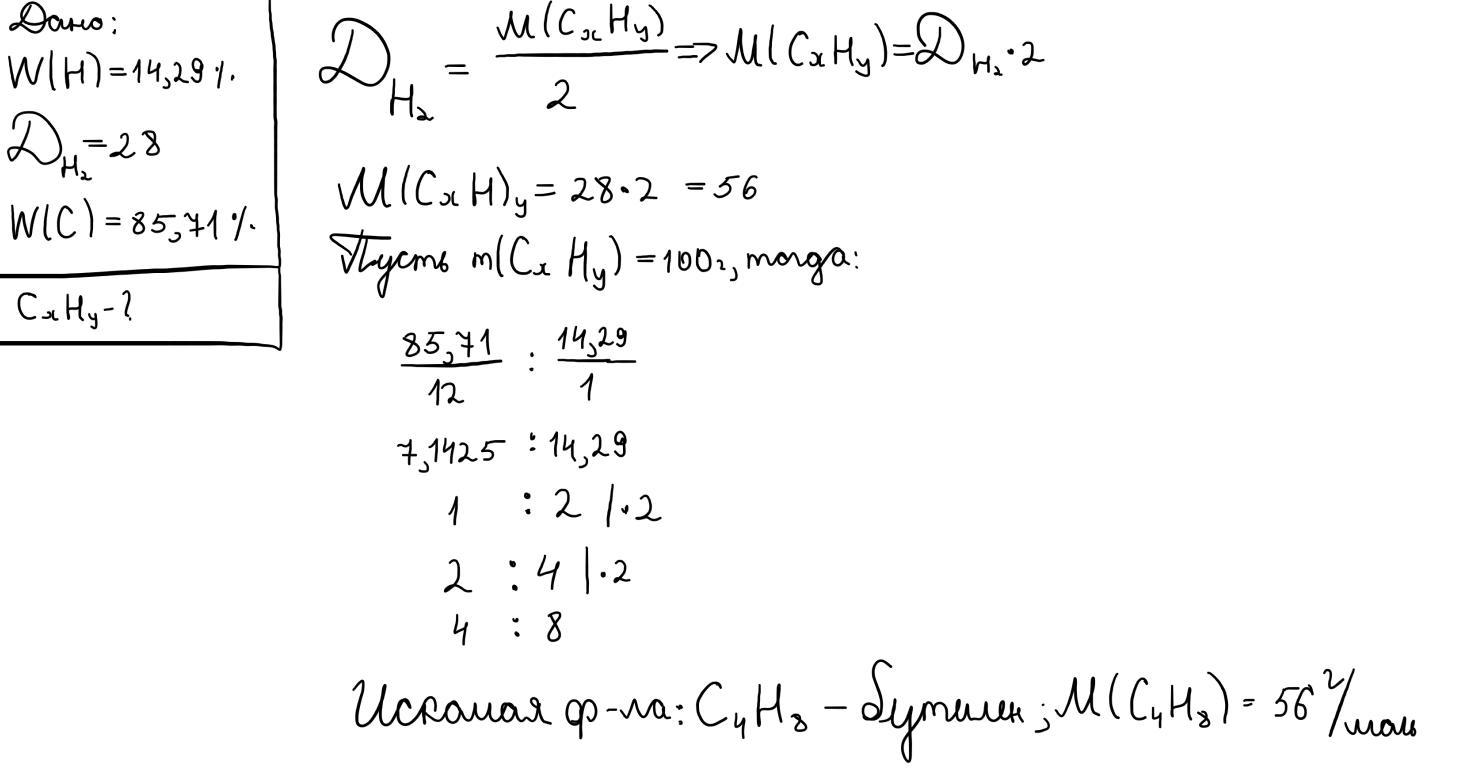 Дано:
W(H)=14,29%
D_H₂=28
W(C)=85,71%
CₓHᵧ-?
D_H₂ = M(CₓHᵧ)/2 => M(CₓHᵧ)=D_H₂·2
M(CₓH)ᵧ=28·2 =56
Пусть m(CₓHᵧ)=100г, тогда:
85,71/12 : 14,29/1
7,1425 : 14,29
1 : 2 |·2
2 : 4 |·2
4 : 8
Искомая ф-ла: C₄H₈ – бутилен; M(C₄H₈)= 56 г/моль